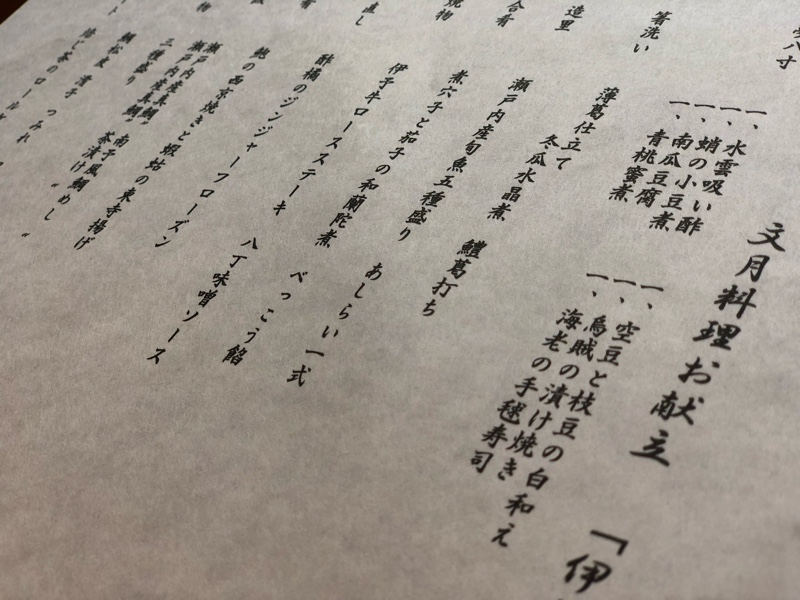 文月料理お献立 「伊
八寸
一、水雲吸い酢
一、蛸の小豆煮
一、南瓜豆腐
一、青桃蜜煮
一、空豆と枝豆の白和え
一、烏賊の漬け焼き
一、海老の手毬寿司
箸洗い
薄葛仕立て
冬瓜水晶煮 鱧葛打ち
造里
瀬戸内産旬魚五種盛り あしらい一式
合肴
煮穴子と茄子の和蘭陀煮 べっこう餡
焼物
伊予牛ロースステーキ 八丁味噌ソース
直し
酢橘のジンジャーフローズン
肴
鮑の西京焼きと蝦蛄の東寺揚げ
物
瀬戸内産真鯛
瀬戸内産真鯛 南予風鯛めし
三種盛り 茶漬け
鯛松皮 漬子 つみれ